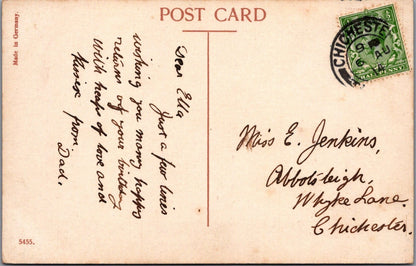 POST CARD
Made in Germany.
Dear Ella
Just a few lines
wishing you many happy
returns of your birthday
With heaps of love and
Kisses from
Dad.
CHICHESTER
AU
14
Miss E. Jenkins,
Abbotsleigh,
Whyke Lane.
Chichester.
5455.